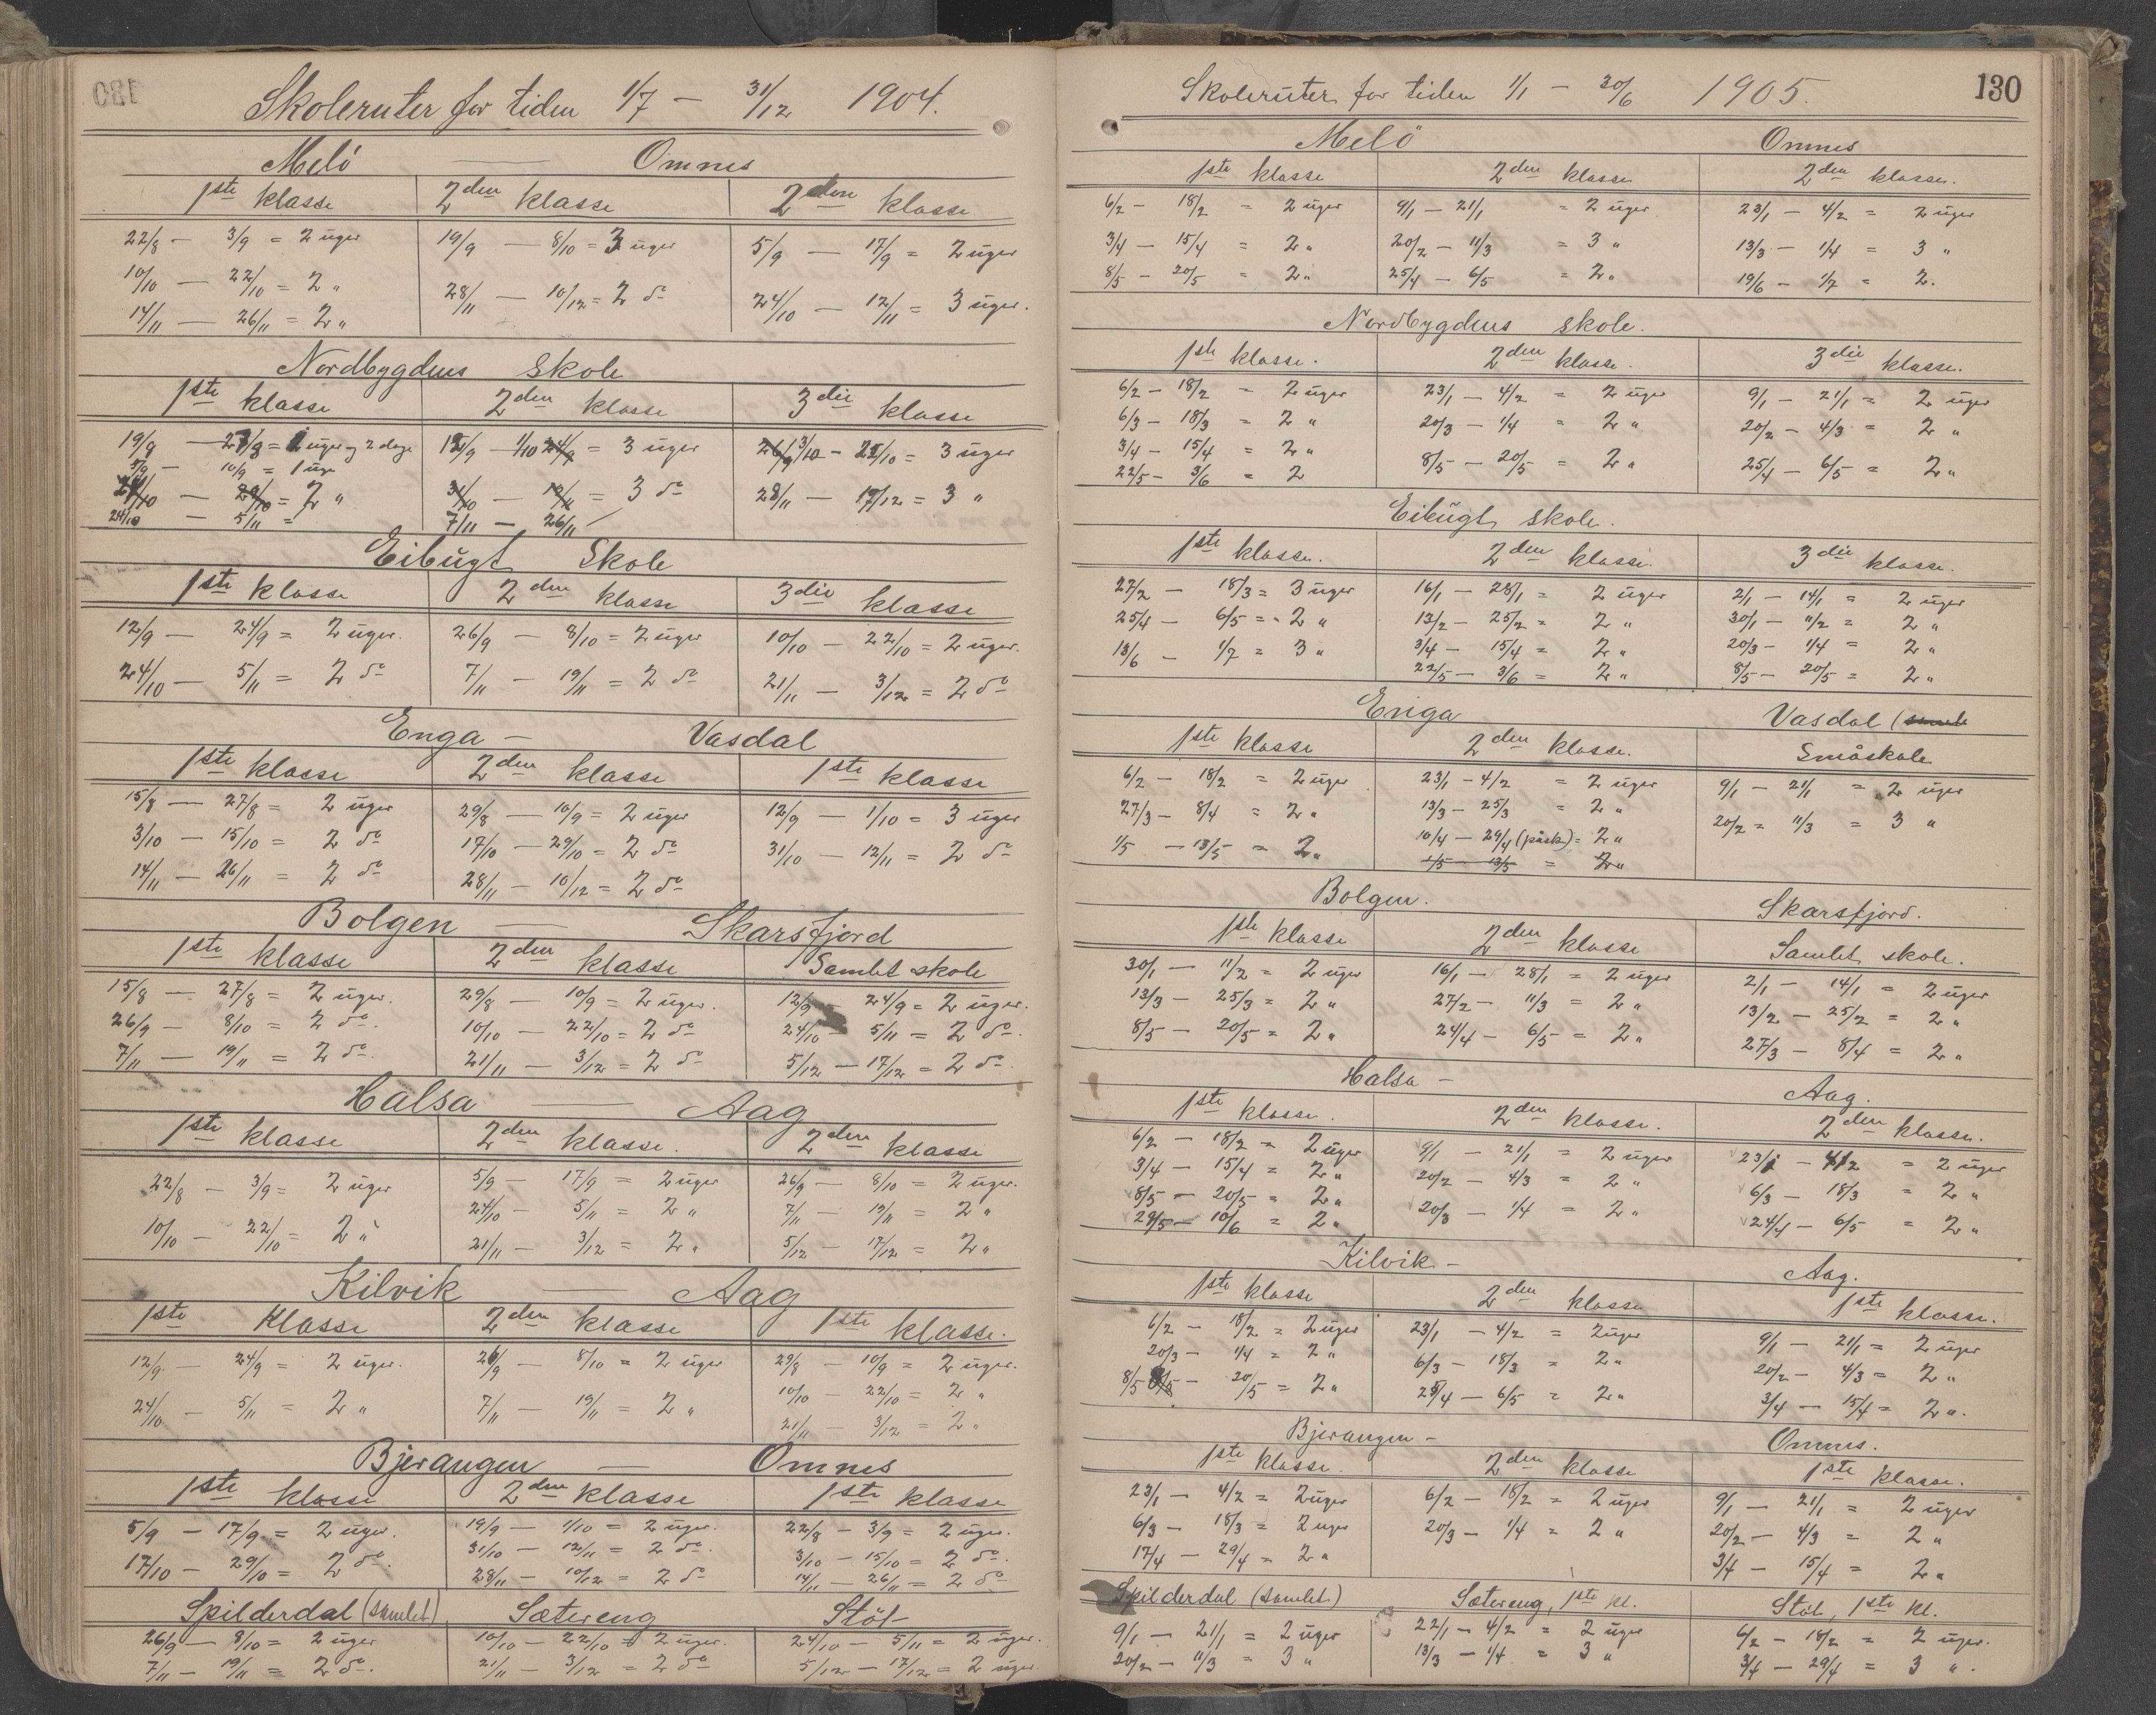 Skoleruter for tiden 1/7 — 31/12 1904.
Melö — Omnes
1ste klasse 2den klasse 2den klasse
22/8 — 3/9 = 2 uger 19/9 — 8/10 = 3 uger 5/9 — 17/9 = 2 uger
10/10 — 22/10 = 2 " 28/11 — 10/12 = 2 do 24/10 — 12/11 = 3 uger.
14/11 — 26/11 = 2 "
Nordbygdens skole
1ste klasse 2den klasse 3die klasse
19/8 — 27/8 = 1 uger og 2 dage 12/9 — 1/10 24/9 = 3 uger 26/9 3/10 — 22/10 = 3 uger
5/9 — 10/9 = 1 uge
24/10 — 29/10 = 2 " 31/10 — 19/11 = 3 do 28/11 — 17/12 = 3 "
24/10 — 5/11 = 7/11 — 26/11
Eibugt Skole
1ste klasse 2den klasse 3die klasse
12/9 — 24/9 = 2 uger. 26/9 — 8/10 = 2 uger 10/10 — 22/10 = 2 uger.
24/10 — 5/11 = 2 do 7/11 — 19/11 = 2 do 21/11 — 3/12 = 2 do
Enga — Vasdal
1ste klasse 2den klasse 1ste klasse
15/8 — 27/8 = 2 uger 29/8 — 10/9 = 2 uger 12/9 — 1/10 = 3 uger
3/10 — 15/10 = 2 do 17/10 — 29/10 = 2 do 31/10 — 12/11 = 2 do
14/11 — 26/11 = 2 do 28/11 — 10/12 = 2 do
Bolgen — Skarsfjord
1ste klasse 2den klasse Samlet skole
15/8 — 27/8 = 2 uger. 29/8 — 10/9 = 2 uger. 12/9 — 24/9 = 2 uger.
26/9 — 8/10 = 2 do. 10/10 — 22/10 = 2 do 24/10 — 5/11 = 2 do.
7/11 — 19/11 = 2 do. 21/11 — 3/12 = 2 do 5/12 — 17/12 = 2 do.
Halsa — Aag
1ste klasse 2den klasse. 2den klasse
22/8 — 3/9 = 2 uger 5/9 — 17/9 = 2 uger 26/9 — 8/10 = 2 uger.
10/10 — 22/10 = 2 " 24/10 — 5/11 = 2 " 7/11 — 19/11 = 2 "
21/11 — 3/12 = 2 " 5/12 — 17/12 = 2 "
Kilvik — Aag
1ste Klasse 2den klasse 1ste klasse.
12/9 — 24/9 = 2 uger. 26/9 — 8/10 = 2 uger 29/8 — 10/9 = 2 uger.
24/10 — 5/11 = 2 " 7/11 — 19/11 = 2 " 10/10 — 22/10 = 2 "
21/11 — 3/12 = 2 "
Bjerangen — Omnes
1ste klasse 2den klasse 1ste klasse
5/9 — 17/9 = 2 uger. 19/9 — 1/10 = 2 uger. 22/8 — 3/9 = 2 uger.
17/10 — 29/10 = 2 do. 31/10 — 12/11 = 2 do. 3/10 — 15/10 = 2 do.
28/11 — 10/12 = 2 do 14/11 — 26/11 = 2 do.
Spilderdal (samlet) Sætereng Stöl
26/9 — 8/10 = 2 uger 10/10 — 22/10 = 2 uger. 24/10 — 5/11 = 2 uger.
7/11 — 19/11 = 2 do. 21/11 — 3/12 = 2 do 5/12 — 17/12 = 2 uger.
130
Skoleruter for tiden 1/1 — 30/6 1905.
Melö Omnes
1ste klasse 2den klasse 2den klasse.
6/2 — 18/2 = 2 uger 9/1 — 21/1 = 2 uger 23/1 — 4/2 = 2 uger
3/4 — 15/4 = 2 " 20/2 — 11/3 = 3 " 13/3 — 1/4 = 3 "
8/5 — 20/5 = 2 " 25/4 — 6/5 = 2 " 19/6 — 1/7 = 2.
Nordbygdens skole.
1ste klasse. 2den klasse. 3die klasse.
6/2 — 18/2 = 2 uger 23/1 — 4/2 = 2 uger 9/1 — 21/1 = 2 uger
6/3 — 18/3 = 2 " 20/3 — 1/4 = 2 " 20/2 — 4/3 = 2 "
3/4 — 15/4 = 2 " 8/5 — 20/5 = 2 " 25/4 — 6/5 = 2 "
22/5 — 3/6 = 2
Eibugt skole.
1ste klasse. 2den klasse. 3die klasse.
27/2 — 18/3 = 3 uger 16/1 — 28/1 = 2 uger 2/1 — 14/1 = 2 uger
25/4 — 6/5 = 2 " 13/2 — 25/2 = 2 " 30/1 — 11/2 = 2 "
13/6 — 1/7 = 3 " 3/4 — 15/4 = 2 " 20/3 — 1/4 = 2 "
22/5 — 3/6 = 2 " 8/5 — 20/5 = 2 "
Enga Vasdal (samle
1ste klasse 2den klasse. Småskole
6/2 — 18/2 = 2 uger 23/1 — 4/2 = 2 uger 9/1 — 21/1 = 2 uger
27/3 — 8/4 = 2 " 13/3 — 25/3 = 2 " 20/2 = 11/3 = 3 "
1/5 — 13/5 = 2 " 10/4 — 29/4 (påsk) = 2 "
1/5 — 13/5 = 2 "
Bolgen. Skarsfjord.
1ste klasse 2den klasse Samlet skole.
30/1 — 11/2 = 2 uger 16/1 — 28/1 = 2 uger 2/1 — 14/1 = 2 uger
13/3 — 25/3 = 2 " 27/2 — 11/3 = 2 " 13/2 — 25/2 = 2 "
8/5 — 20/5 = 2 " 24/4 — 6/5 = 2 " 27/3 — 8/4 = 2 "
Halsa — Aag.
1ste klasse. 2den klasse. 2den klasse.
6/2 — 18/2 = 2 uger 9/1 — 21/1 = 2 uger 23/1 — 4/2 = 2 uger
3/4 — 15/4 = 2 " 20/2 — 4/3 = 2 " 6/3 — 18/3 = 2 "
8/5 — 20/5 = 2 " 20/3 — 1/4 = 2 " 24/4 — 6/5 = 2 "
29/5 — 10/6 = 2 "
Kilvik — Aag.
1ste klasse 2den klasse 1ste klasse.
6/2 — 18/2 = 2 uger 23/1 — 4/2 = 2 uger 9/1 — 21/1 = 2 uger
20/3 — 1/4 = 2 " 6/3 — 18/3 = 2 " 20/2 — 4/3 = 2 "
8/5 — 20/5 = 2 " 25/4 — 6/5 = 2 " 3/4 — 15/4 = 2 ".
Bjerangen — Omnes.
1ste klasse. 2den klasse 1ste klasse.
23/1 — 4/2 = 2 uger 6/2 — 18/2 = 2 uger 9/1 — 21/1 = 2 uger
6/3 — 18/3 = 2 uger 20/3 — 1/4 = 2 " 20/2 — 4/3 = 2 "
17/4 — 29/4 = 2 " 3/4 — 15/4 = 2 "
Spilderdal (samlet.) Sætereng, 1ste kl. Stöl, 1ste kl.
9/1 — 21/1 = 2 uger 22/1 — 4/2 = 2 uger 6/2 — 18/2 = 2 uger.
20/2 — 11/3 = 3 " 13/3 — 1/4 = 3 " 3/4 — 29/4 = 3 ".